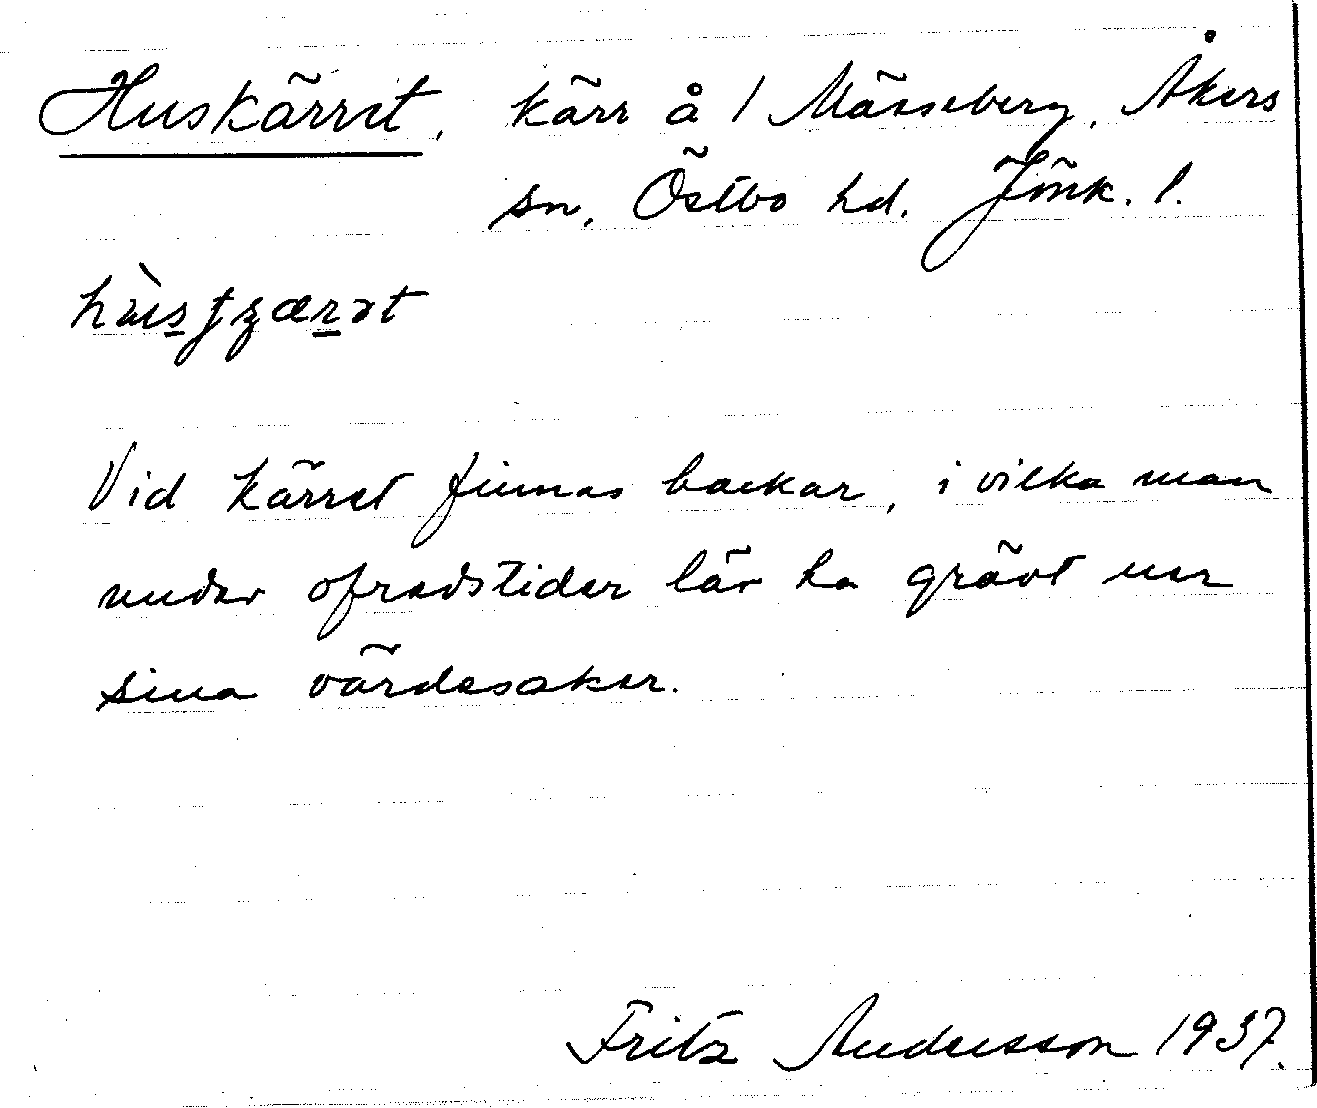 Huskärret, kärr å / Mässeberg, Åkers
sn, Östbo hd. Jönk. l.
Vid kärret finnas backar, i vilka man
under ofredstider lär ha grävt ner
sina värdesaker.
Fritz Andersson 1937.